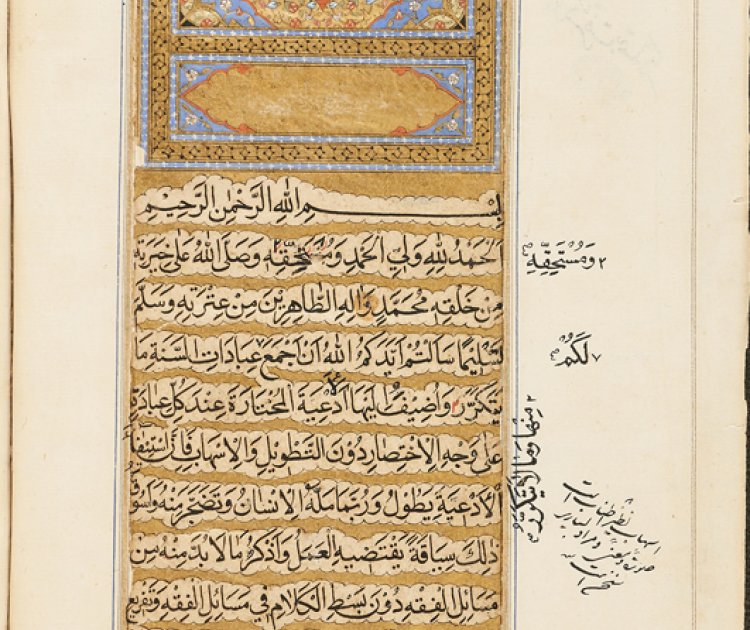 بِسْمِ اللهِ الرَّحْمٰنِ الرَّحِيْمِ
اَلْحَمْدُ لِلّٰهِ وَلِيِّ الْحَمْدِ وَمُسْتَحِقِّهِ وَصَلَّى اللهُ عَلٰى خِيَرَتِهِ
مِنْ خَلْقِهِ مُحَمَّدٍ وَاٰلِهِ الطَّاهِرِيْنَ مِنْ عِتْرَتِهِ وَسَلَّمَ
تَسْلِيْمًا سَاَلْتُمْ اَيَّدَكُمُ اللهُ اَنْ اَجْمَعَ عِبَادَاتِ السَّنَةِ مَا
يَتَكَرَّرُ وَاُضِيْفُ اِلَيْهَا الْاَدْعِيَةَ الْمُخْتَارَةَ عِنْدَ كُلِّ عِبَادَةٍ
عَلٰى وَجْهِ الْاِخْتِصَارِ دُوْنَ التَّطْوِيْلِ وَالْاِسْهَابِ فَاِنَّ اسْتِيْفَاءَ
الْاَدْعِيَةِ يَطُوْلُ وَرُبَّمَا مَلَّهُ الْاِنْسَانُ وَتَضَجَّرَ مِنْهُ وَاَسُوْقُ
ذٰلِكَ سِيَاقَةً يَقْتَضِيْهِ الْعَمَلُ وَاَذْكُرُ مَا لَا بُدَّ مِنْهُ مِنْ
مَسَائِلِ الْفِقْهِ دُوْنَ بَسْطِ الْكَلَامِ فِيْ مَسَائِلِ الْفِقْهِ وَتَفْرِيْعِ
٢ وَمُسْتَحِقِّهِ
٧ لَكُمْ
٢ مِنْهَا وَمَا لَا يَتَكَرَّرُ